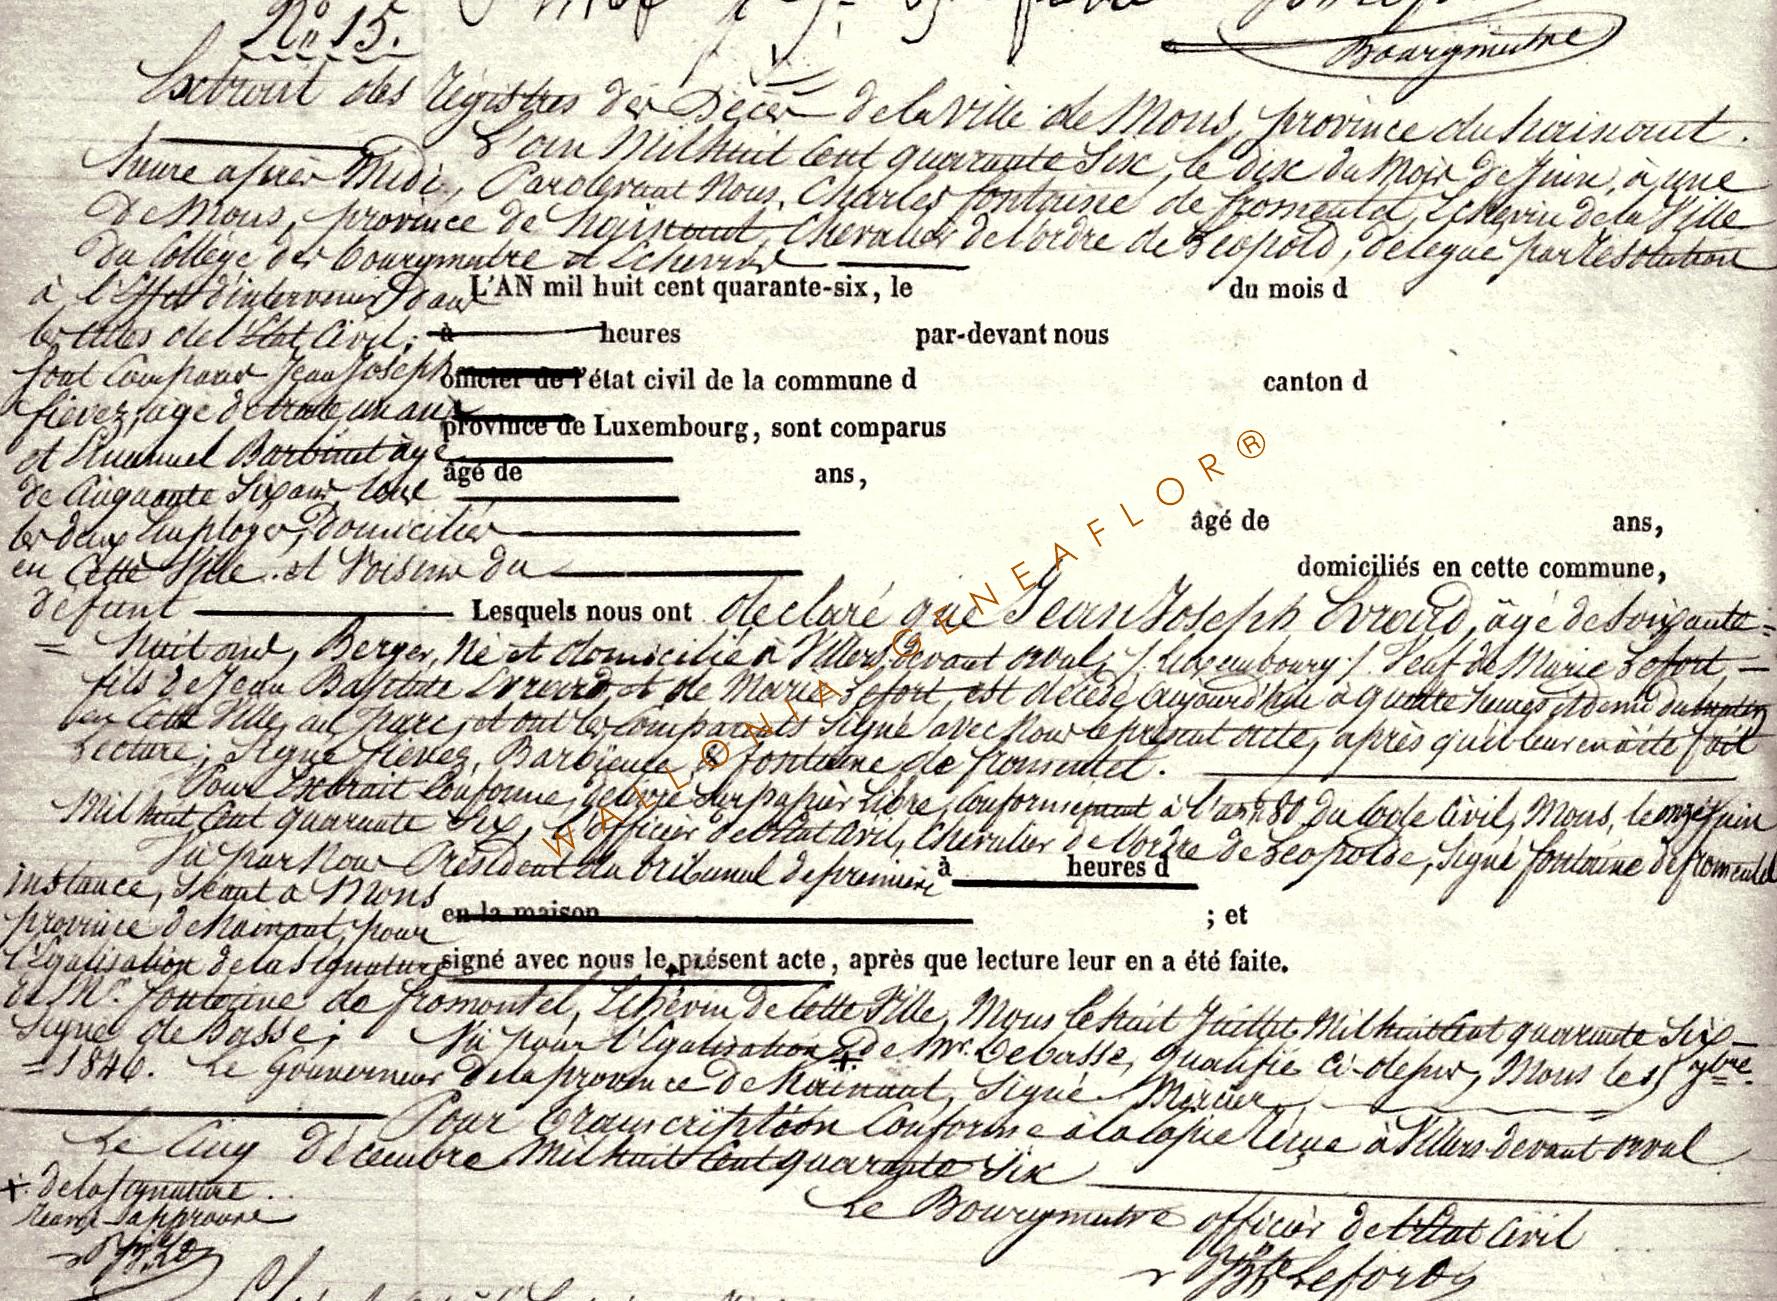 N° 15.
Bourgmestre
Extrait des Régistres des Décès de la Ville de Mons, province du hainaut.
L'an Mil huit Cent quarante Six, le dix du Mois de Juin, à une
heure après Midi, Pardevant Nous, Charles fontaine de fromentel, Echevin de la Ville
De Mons, province de hainaut, Chevalier de l'ordre de Léopold, délégué par Résolution
du Collège des bourgmestre et Echevins
à l'Effet d'intervenir dans L'AN mil huit cent quarante-six, le du mois d
les actes de l'Etat Civil; à heures par-devant nous
sont Comparus Jean Joseph officier de l'état civil de la commune d canton d
fievez, âgé de trente un ans province de Luxembourg, sont comparus
et Emanuel âgé
âgé de ans,
de Cinquante Six ans, tous
âgé de ans,
les deux Employés, Domiciliés
en Cette Ville et Voisins du domiciliés en cette commune,
défunt Lesquels nous ont declaré que Jean Joseph Evrard, âgé de Soixante=
= huit ans, Berger, Né et domicilié à Villers devant orval, /Luxembourg/. Veuf de Marie Lefort —
fils de Jean Baptiste Evrard, et de Marie Lefort, est décédé aujourd'hui à quatre heures et demi du matin
en Cette Ville, au Parc, et ont les Comparants Signé avec Nous le présent acte, après qu'il leur en a été fait
Lecture; Signé fievez, & fontaine de fromentel.
Pour Extrait Conforme, délivré sur papier Libre, Conformément à l'art. 80 du Code Civil, Mons, le onze Juin
Mil huit Cent quarante Six, L'officier de l'Etat Civil, Chevalier de l'ordre de Léopolde, Signé fontaine de fromentel
Vu par Nous Président du tribunal de première à heures d
instance, Séant à Mons
en la maison ; et
province de hainaut, pour
l'Egalisation de la Signature signé avec nous le présent acte, après que lecture leur en a été faite.
de Mr. fontaine de fromentel, Echevin de Cette Ville, Mons le huit Juillet Mil huit Cent quarante Six —
Signé de Basse; Vu pour l'Egalisation de Mr. Debasse, qualifié Ci-dessus, Mons le 15 7bre
= 1846. Le Gouverneur De la province de hainaut, Signé Mercier
Pour transcription Conforme à la Copie reçue à Villers devant orval
Le Cinq décembre Mil huit Cent quarante Six
+ de la signature
Le Bourgmestre officier de l'Etat Civil
Lefort
WALLONIA GENEAFLOR®